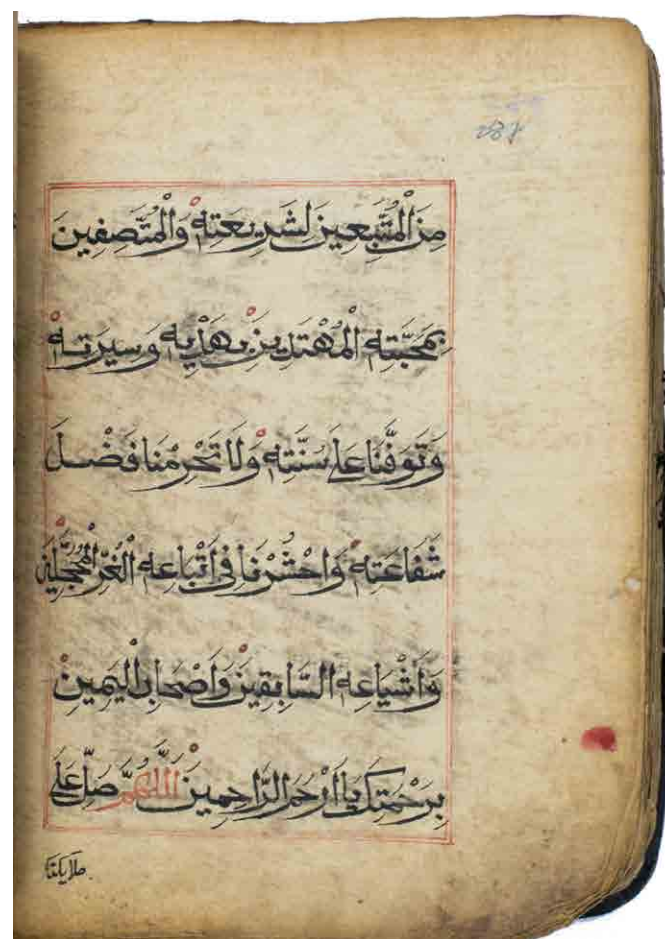 مِنَ الْمُتَّبِعِينَ لِشَرِيعَتِهِ وَالْمُتَّصِفِينَ
بِمَحَبَّتِهِ الْمُهْتَدِينَ بِهَدْيِهِ وَسِيرَتِهِ
وَتَوَفَّنَا عَلَى سُنَّتِهِ وَلَا تَحْرِمْنَا فَضْلَ
شَفَاعَتِهِ وَاحْشُرْنَا فِي أَتْبَاعِهِ الْغُرِّ الْمُحَجَّلِينَ
وَأَشْيَاعِهِ السَّابِقِينَ وَأَصْحَابِ الْيَمِينِ
بِرَحْمَتِكَ يَا أَرْحَمَ الرَّاحِمِينَ اللَّهُمَّ صَلِّ عَلَى
ملايكتك